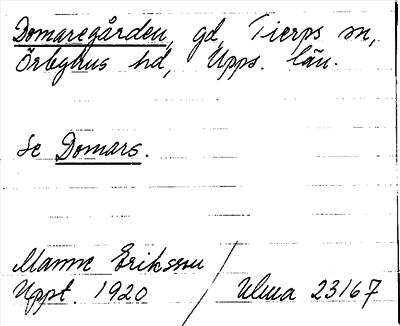 Domaregården, gd, Tierps sn,
Örbyhus hd, Upps. län.
Se Domars.
Manne Eriksson
Uppt. 1920 / Ulma 23167